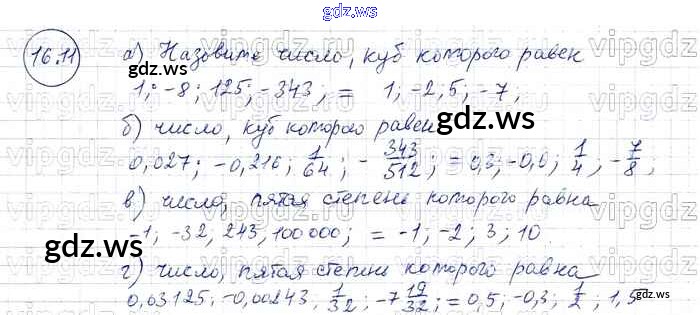 gdz.ws
16.11 а) Назовите число, куб которого равен
1; -8; 125; -343; = 1; -2; 5; -7;
б) число, куб которого равен
0,027; -0,216; 1/64; -343/512; = 0,3; -0,6; 1/4; -7/8;
в) число, пятая степень которого равна
-1; -32, 243, 100000; = -1; -2; 3; 10
г) число, пятая степень которого равна
0,03125; -0,00243, 1/32; -7 19/32; = 0,5; -0,3; 1/2; 1,5
gdz.ws
gdz.ws
gdz.ws
gdz.ws